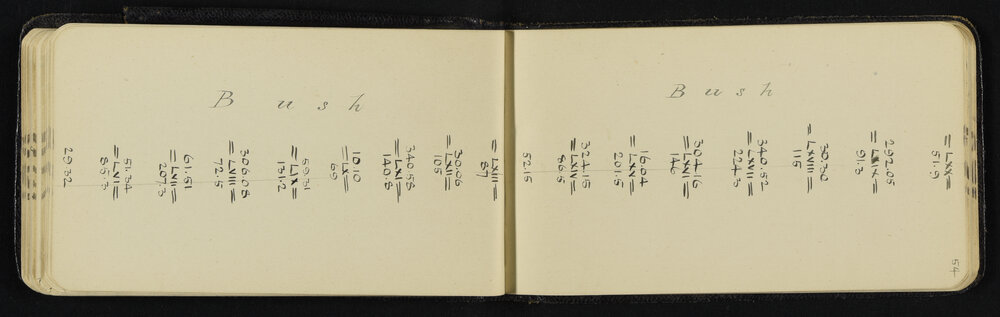 Bush
=LXX=
51.9
292.05
=LXIX=
91.3
30.30
=LXVIII=
115
340.52
=LXVII=
224.3
304.16
=LXVI=
146
16.04
=LXV=
201.5
324.15
=LXIV=
86.5
52.15
54
Bush
=LXIII=
87
30.06
105
340.58
=LXI=
140.8
10.10
=LX=
69
59.51
=LIX=
131.2
306.08
=LVIII=
72.5
61.51
=LVII=
207.3
51.34
=LVI=
85.3